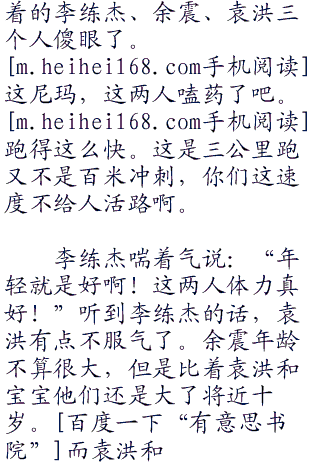 着的李练杰、余震、袁洪三
个人傻眼了。
[m.heihei168.com手机阅读]
这尼玛，这两人嗑药了吧。
[m.heihei168.com手机阅读]
跑得这么快。这是三公里跑
又不是百米冲刺，你们这速
度不给人活路啊。
李练杰喘着气说：“年
轻就是好啊！这两人体力真
好！”听到李练杰的话，袁
洪有点不服气了。余震年龄
不算很大，但是比着袁洪和
宝宝他们还是大了将近十
岁。[百度一下“有意思书
院”]而袁洪和